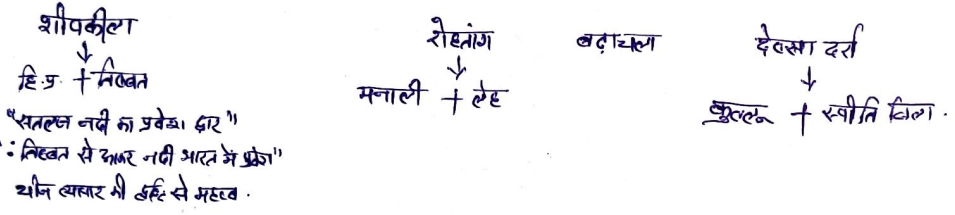 शीपकीला
हि.प्र. + तिब्बत
"सतलज नदी का प्रवेश द्वार"
: तिब्बत से आकर नदी भारत में प्रवेश"
चीन व्यापार की दृष्टि से महत्व .
रोहतांग
मनाली + लेह
बड़ाचला
देवसा दर्रा
कुल्लू + स्पीति जिला .